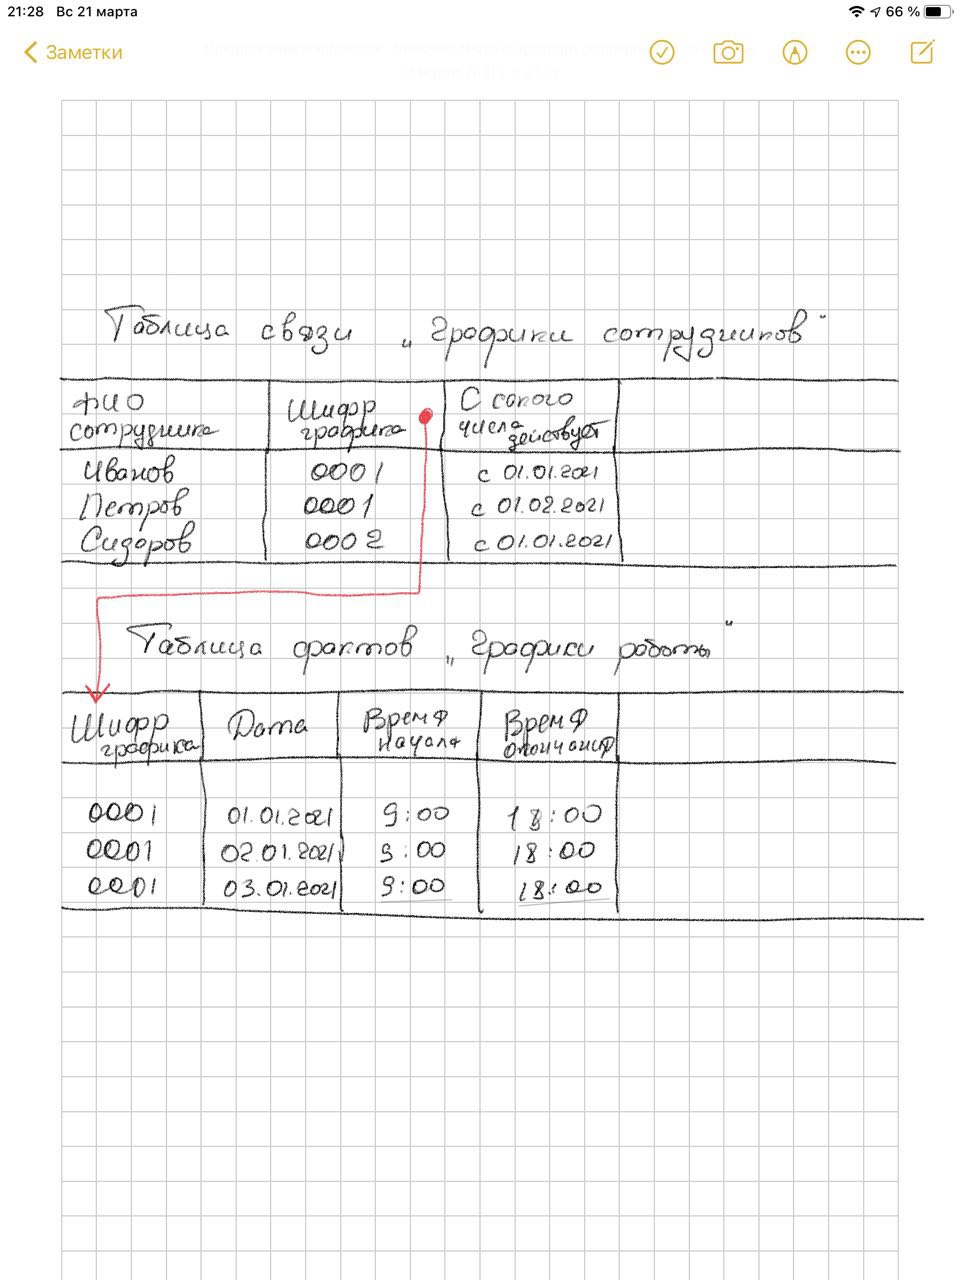 21:28 Вс 21 марта 66 %
Заметки
Таблица связи „Графики сотрудников“
ФИО сотрудника Шифр графика С сокого числа действует
Иванов 0001 с 01.01.2021
Петров 0001 с 01.02.2021
Сидоров 0002 с 01.01.2021
Таблица фактов „Графики работы“
Шифр графика Дата Время начала Время окончания
0001 01.01.2021 9:00 18:00
0001 02.01.2021 9:00 18:00
0001 03.01.2021 9:00 18:00